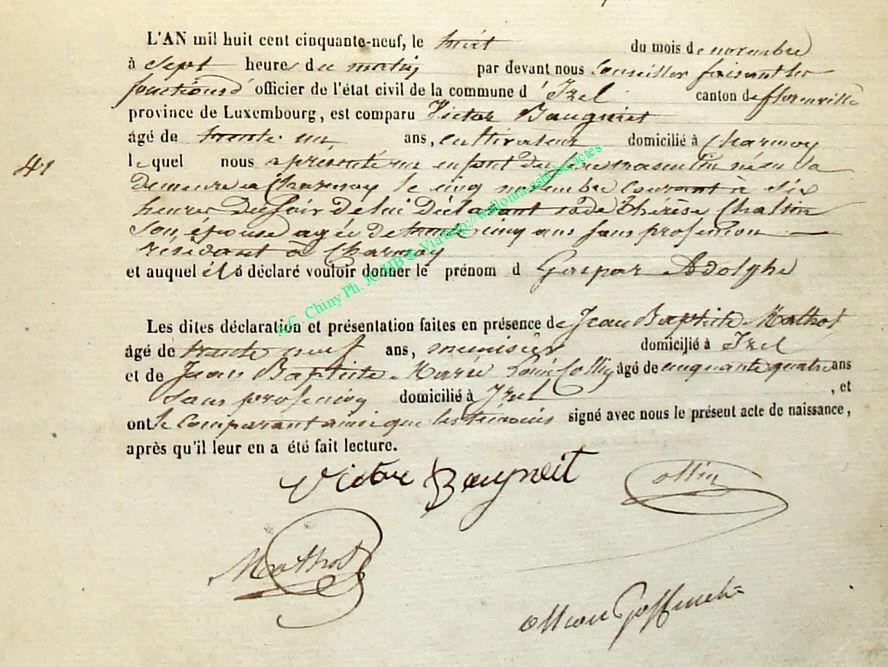 L'AN mil huit cent cinquante-neuf, le huit du mois de novembre
à sept heures du matin par devant nous Conseiller faisant les
fonctions d officier de l'état civil de la commune d'Izel canton de florenville
province de Luxembourg, est comparu Victor Baugniet
âgé de trente un ans, cultivateur domicilié à Charmoy
41
lequel nous a présenté un enfant du sexe masculin né en sa
demeure à Charmoy le cinq novembre courant à six
heures du soir de lui déclarant et de Thérèse
son épouse agée de cinq ans sans profession
résidant à Charmoy
et auquel il a déclaré vouloir donner le prénom d Gaspar Adolphe
Les dites déclaration et présentation faites en présence de Jean Baptiste Mathot
âgé de trente neuf ans, menuisier domicilié à Izel
et de Jean Baptiste Collin âgé de cinquante quatre ans
sans profession domicilié à Izel , et
ont le comparant ainsi que les temoins signé avec nous le présent acte de naissance,
après qu'il leur en a été fait lecture.
Victor Baugniet
Collin
Mathot
A.G. Chiny Ph. JC HB © Via http://wallonica.ishb.be/actes